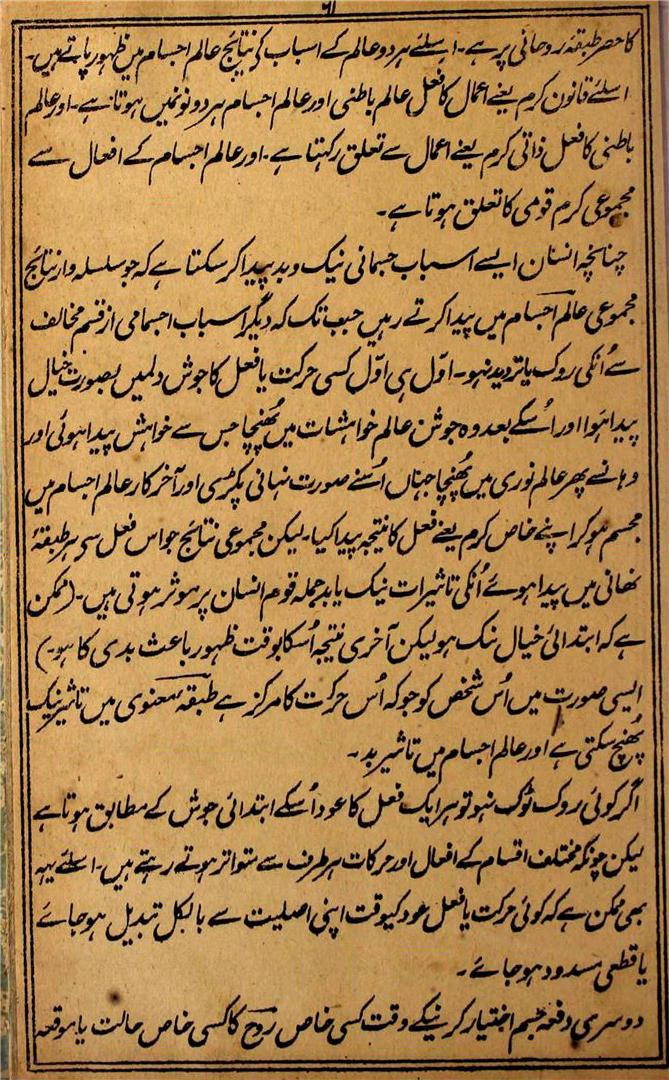 ٦١
کا حصر طبقۂ روحانی پر ہے۔ اسلئے ہر دو عالم کے اسباب کے نتایج عالم اجسام میں ظہور پاتے ہیں۔
اسلئے قانون کرم یعنے اعمال کا فعل عالم باطنی اور عالم اجسام ہر دو نو نمیں ہوتا ہے۔ اور عالم
باطنی کا فعل ذاتی کرم یعنے اعمال سے تعلق رکہتا ہے۔ اور عالم اجسام کے افعال سے
مجموعی کرم قومی کا تعلق ہوتا ہے۔
چنانچہ انسان ایسے اسباب جسمانی نیک و بد پیدا کر سکتا ہے کہ جو سلسلہ وار نتایج
مجموعی عالم اجسام میں پیدا کرتے رہیں جب تک کہ دیگر اسباب اجسامی از قسم مخالف
سے اُنکی روک یا تردید نہو۔ اول ہی اوّل کسی حرکت یا فعل کا جوش دلمیں بصورت خیال
پیدا ہوا اور اُسکے بعد وہ جوش عالم خواہشات میں پُھنچا جس سے خواہش پیدا ہوئی اور
وہانسے پھر عالم نوری میں پُھنچا جہاں اُسنے صورت نہانی پکڑی اور آخر کار عالم اجسام میں
مجسم ہو کر اپنے خاص کرم یعنے فعل کا نتیجہ پیدا کیا۔ لیکن مجموعی نتایج جو اس فعل سے ہر طبقۂ
نھانی میں پیدا ہوئے اُنکی تاثیرات نیک یا بد جملہ قوم انسان پر موثر ہوتی ہیں۔ (ممکن
ہے کہ ابتدائی خیال نیک ہو لیکن آخری نتیجہ اُسکا بوقت ظہور باعث بدی کا ہو۔)
ایسی صورت میں اُس شخص کو جو کہ اُس حرکت کا مرکز ہے طبقہ معنوی میں تاثیر نیک
پُھنچ سکتی ہے اور عالم اجسام میں تاثیر بد۔
اگر کوئی روک ٹوک نہو تو ہر ایک فعل کا عود اُسکے ابتدائی جوش کے مطابق ہوتا ہے
لیکن چونکہ مختلف اقسام کے افعال اور حرکات ہر طرف سے متواتر ہوتے رہتے ہیں۔ اسلئے یہہ
بھی ممکن ہے کہ کوئی حرکت یا فعل عود کیوقت اپنی اصلیت سے بالکل تبدیل ہو جائے
یا قطعی مسدود ہو جائے۔
دوسری دفعہ جسم اختیار کرنیکے وقت کسی خاص روح کا کسی خاص حالت یا موقعہ